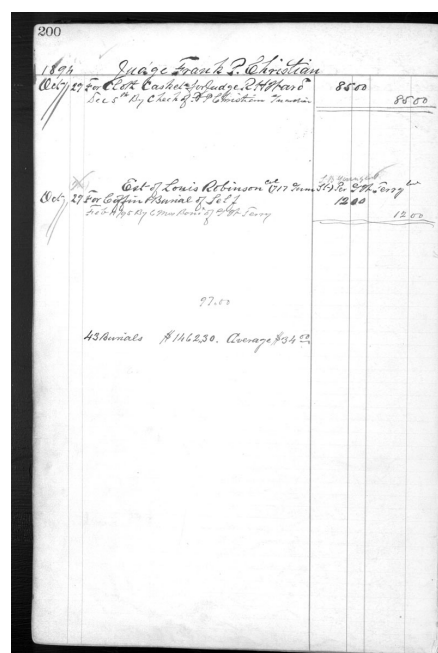 200
1894 Judge Frank P. Christian
Oct 27 For Cloth Casket for Judge R H Ward 85 00
Dec 5th By Check of F P Christian 85 00
Est of Louis Robinson col (717 St) Per Terry
Oct 27 For Coffin & Burial of Self 12 00
Feb By of Terry 12 00
97.00
43 Burials $1462 30. Average $34 00